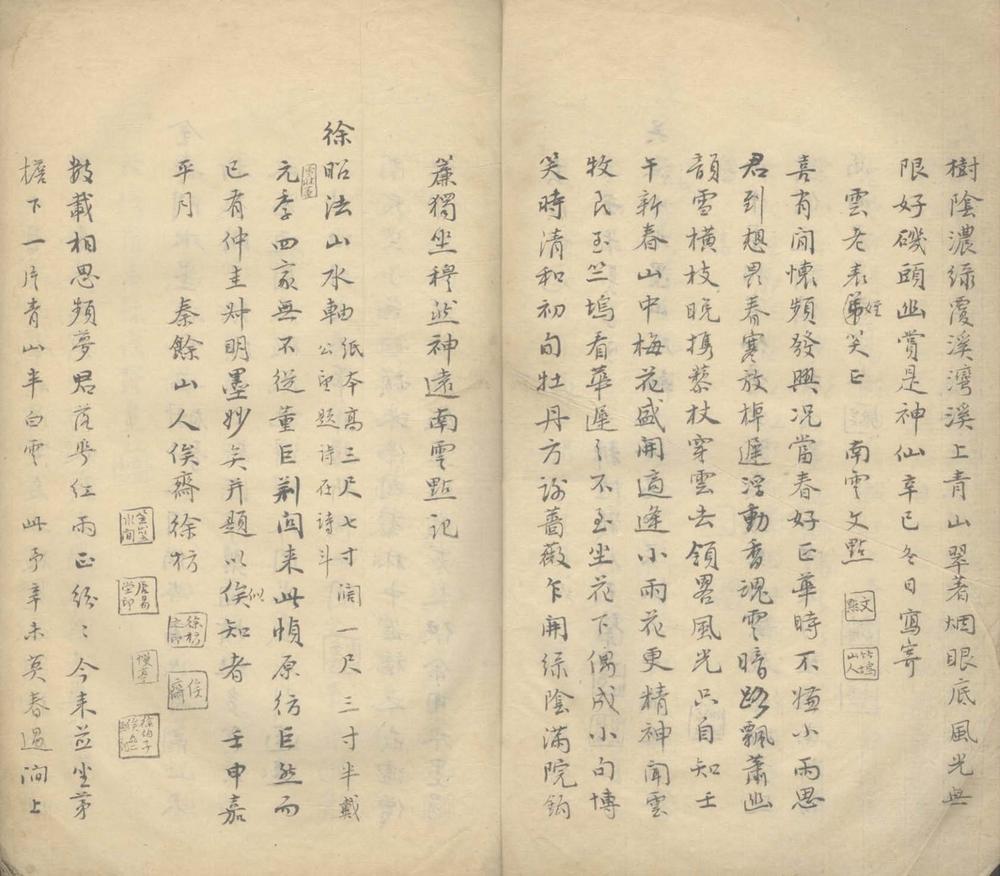 樹陰濃綠覆溪灣溪上青山翠著烟眼底風光無
限好磯頭幽賞是神仙辛巳冬日寫寄
雲老表弟姪笑正 南雲文點 文點
喜有閒懷頻發興况當春好正華時不嫌小雨思
君到想畏春寒放棹遲浮動香魂雲暗路飄蕭幽
韻雪橫枝晚携藜杖穿雲去領畧風光只自知壬
午新春山中梅花盛開適逢小雨花更精神聞雲
牧民至竺塢看華遲遲不至坐花下偶成小句博
笑時清和初旬牡丹方謝薔薇乍開綠陰滿院鈎
簾獨坐穆然神遠南雲點記
徐昭法山水軸 紙本高三尺七寸闊一尺三寸半戴
公望題詩在詩斗
元季四家無不從董巨荆関来此幀原仿巨然而
已有仲圭叔明墨妙矣并題以俟似知者 壬申嘉
平月 秦餘山人俟齋徐枋 徐枋之印 俟齋
居易堂印
數載相思頻夢君落花红雨正紛紛今来並坐茅
檐下一片青山半白雲此予辛未莫春過澗上